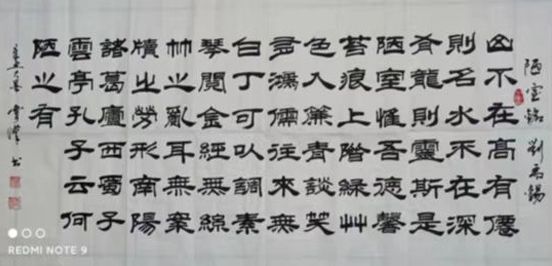 陋室銘 劉禹錫
山不在高有僊
則名水不在深
有龍則靈斯是
陋室惟吾德馨
苔痕上階綠艸
色入簾青談笑
有鴻儒往來無
白丁可以調素
琴閱金經無絲
竹之亂耳無案
牘之勞形南陽
諸葛廬西蜀子
雲亭孔子云何
陋之有
書
REDMI NOTE 9